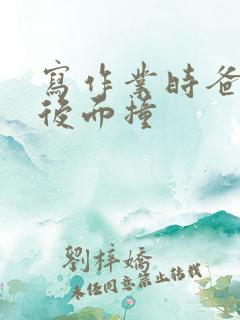 寫作業時爸
後面撞
劉梓嬌
未經同意禁止轉載